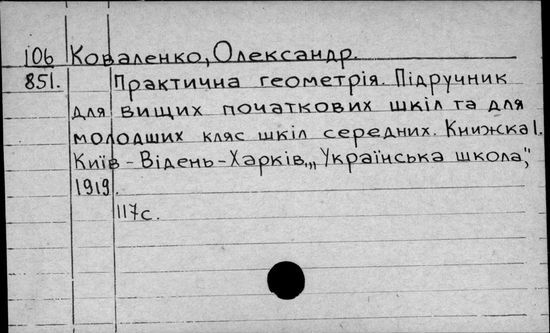 106 Коваленко, Олександр.
851. Практична геометрія. Підручник
для вищих початкових шкіл та для
молодших кляс шкіл середних. Книжска 1.
Київ-Відень-Харків. „Українська школа",
1919.
117с.